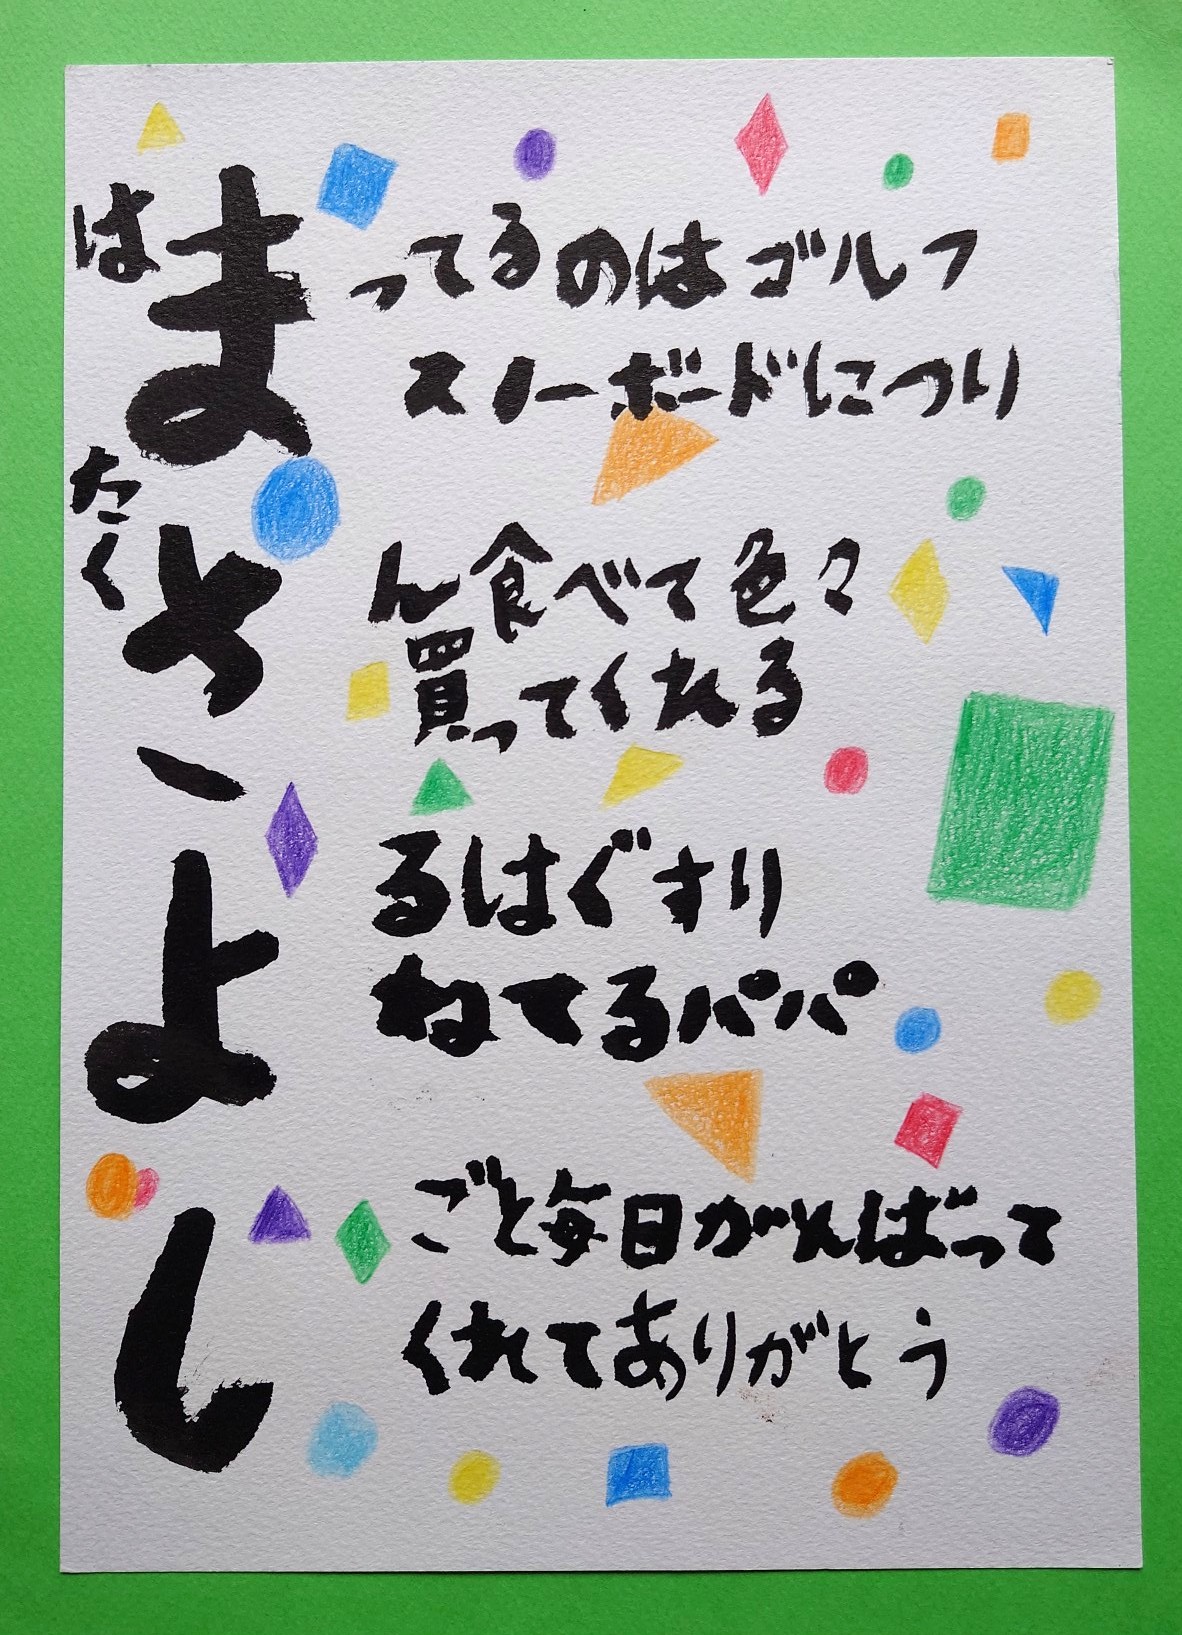 はまってるのはゴルフ
スノーボードにつり
たくさん食べて色々
買ってくれる
よるはぐすり
ねてるパパ
しごと毎日がんばって
くれてありがとう